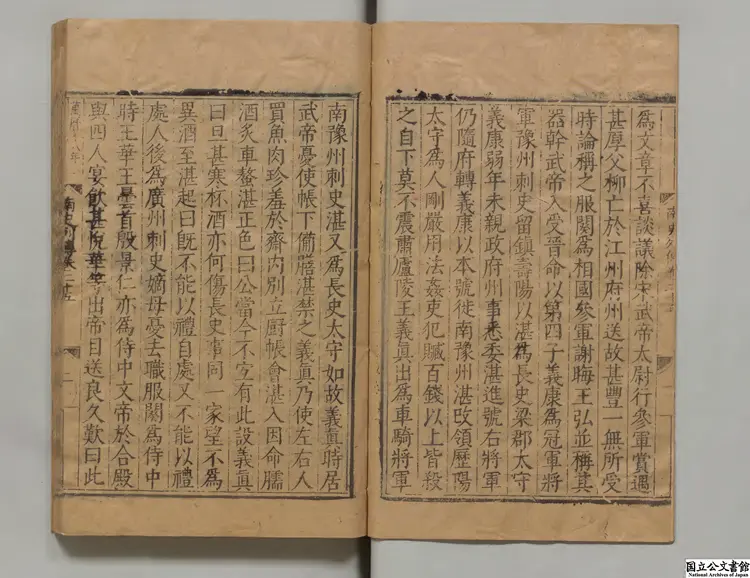 為文章不喜談議除宋武帝太尉行參軍賞遇
甚厚父柳亡於江州府州送故甚豐一無所受
時論稱之服闋為相國參軍謝晦王弘並稱其
器幹武帝入受晉命以第四子義康為冠軍將
軍豫州刺史留鎮壽陽以湛為長史梁郡太守
義康弱年未親政府州事悉委湛進號右將軍
仍隨府轉義康以本號徙南豫州湛改領歷陽
太守為人剛嚴用法姦吏犯贓百錢以上皆殺
之自下莫不震肅廬陵王義真出為車騎將軍
南豫州刺史湛又為長史太守如故義真時居
武帝憂使帳下備膳湛禁之義真乃使左右人
買魚肉珍羞於齋內別立厨帳會湛入因命臑
酒炙車螯湛正色曰公當今不宜有此設義真
曰旦甚寒杯酒亦何傷長史事同一家望不為
異酒至湛起曰既不能以禮自處又不能以禮
處人後為廣州刺史嫡母憂去職服闋為侍中
時王華王曇首殷景仁亦為侍中文帝於合殿
與四人宴飲甚悅華等出帝目送良久歎曰此
南史列傳卷二十五
二
国立公文書館
National Archives of Japan